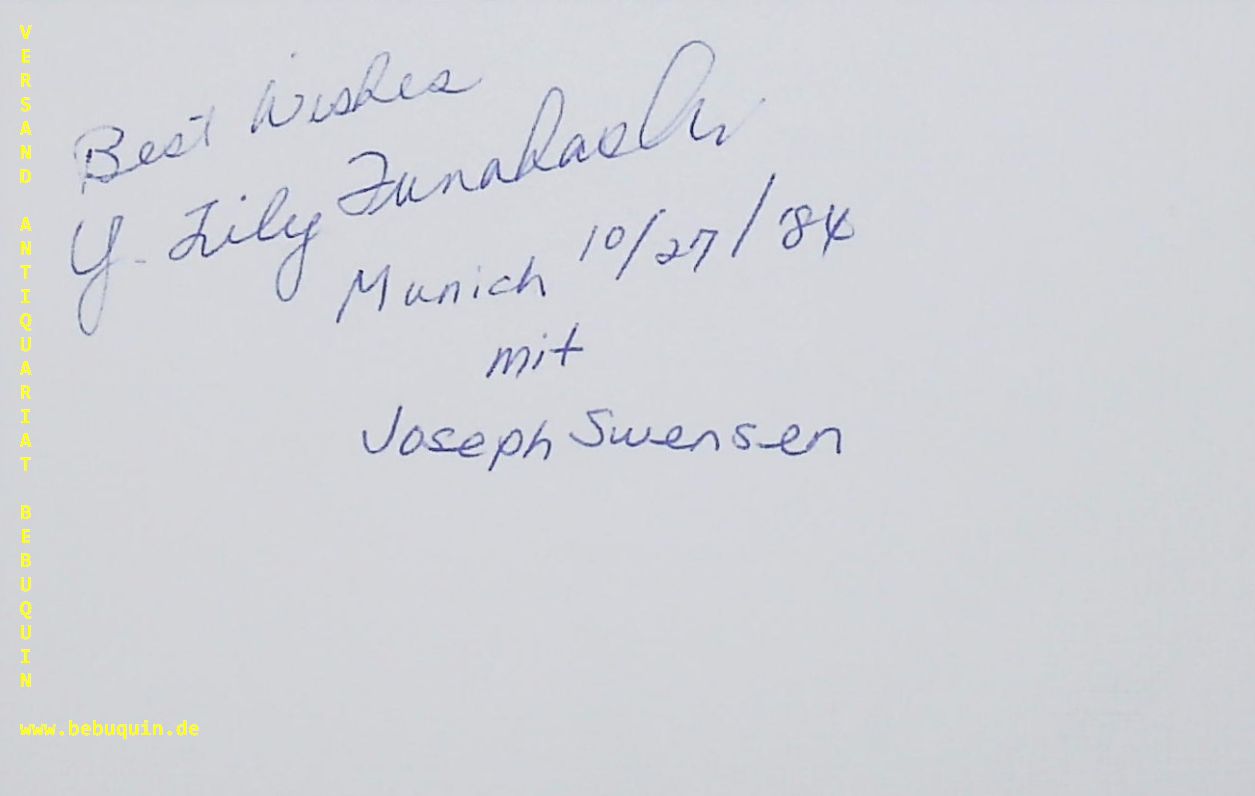 Best Wishes
Y. Lily Funahashi
Munich 10/27/'84
mit
Joseph Swensen
VERSAND ANTIQUARIAT BEBUQUIN
www.bebuquin.de